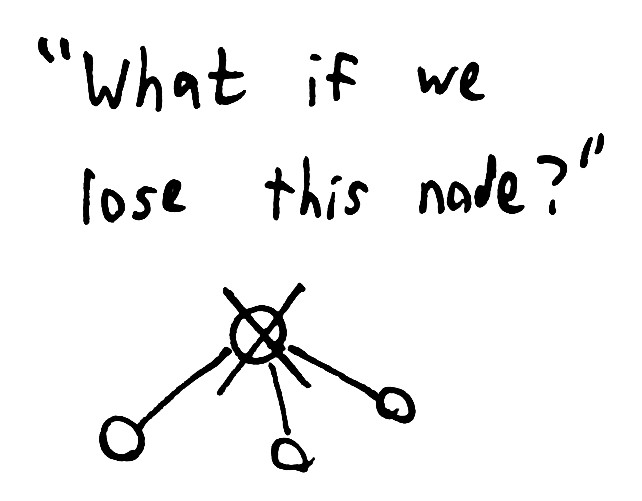 "What if we
lose this node?"